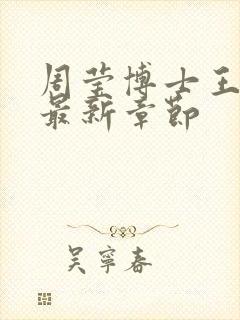 周莹博士王
最新章节
吴宁春